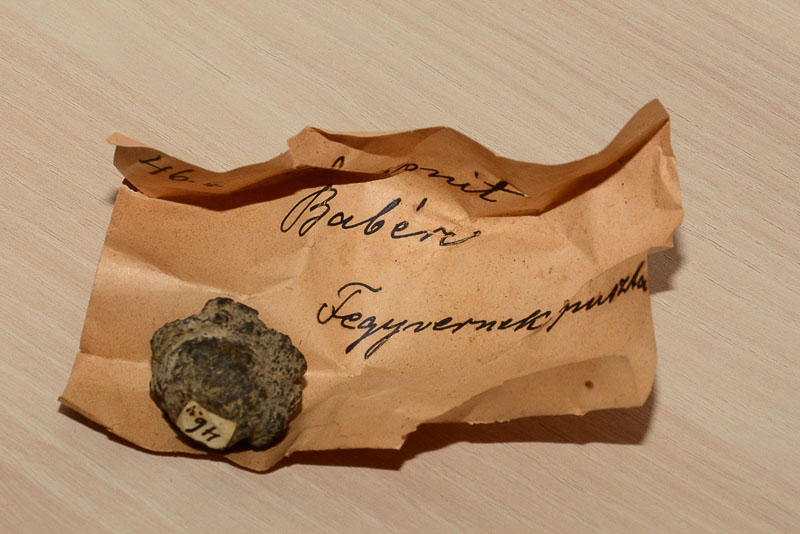 46.
Babérc
Fegyvernek puszta
46